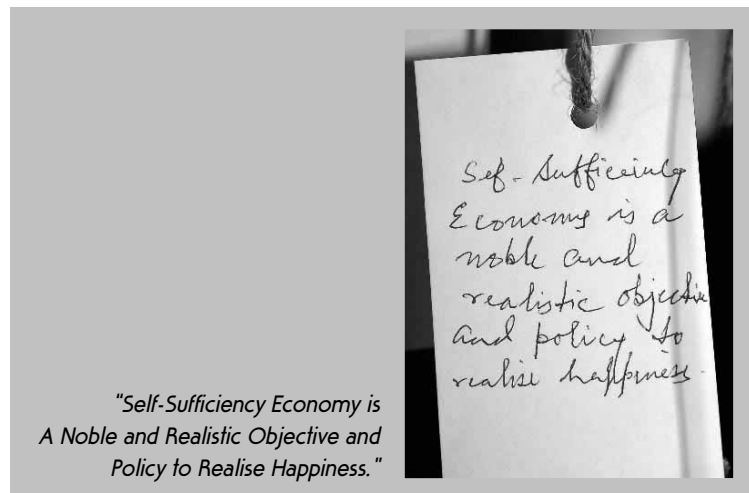 Sef-Sufficiency
Economy is a
noble and
realistic objective
and policy to
realise happiness.
"Self-Sufficiency Economy is
A Noble and Realistic Objective and
Policy to Realise Happiness."